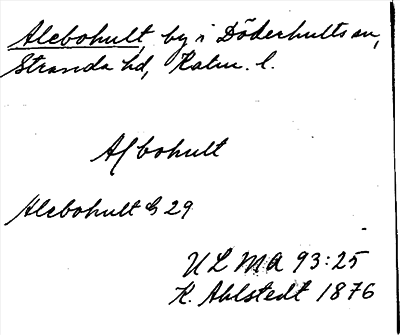 Alebohult, by i Döderhults sn,
Stranda hd, Kalm. l.
Albohult
Alebohult G 29
ULMA 93:25
K. Ahlstedt 1876